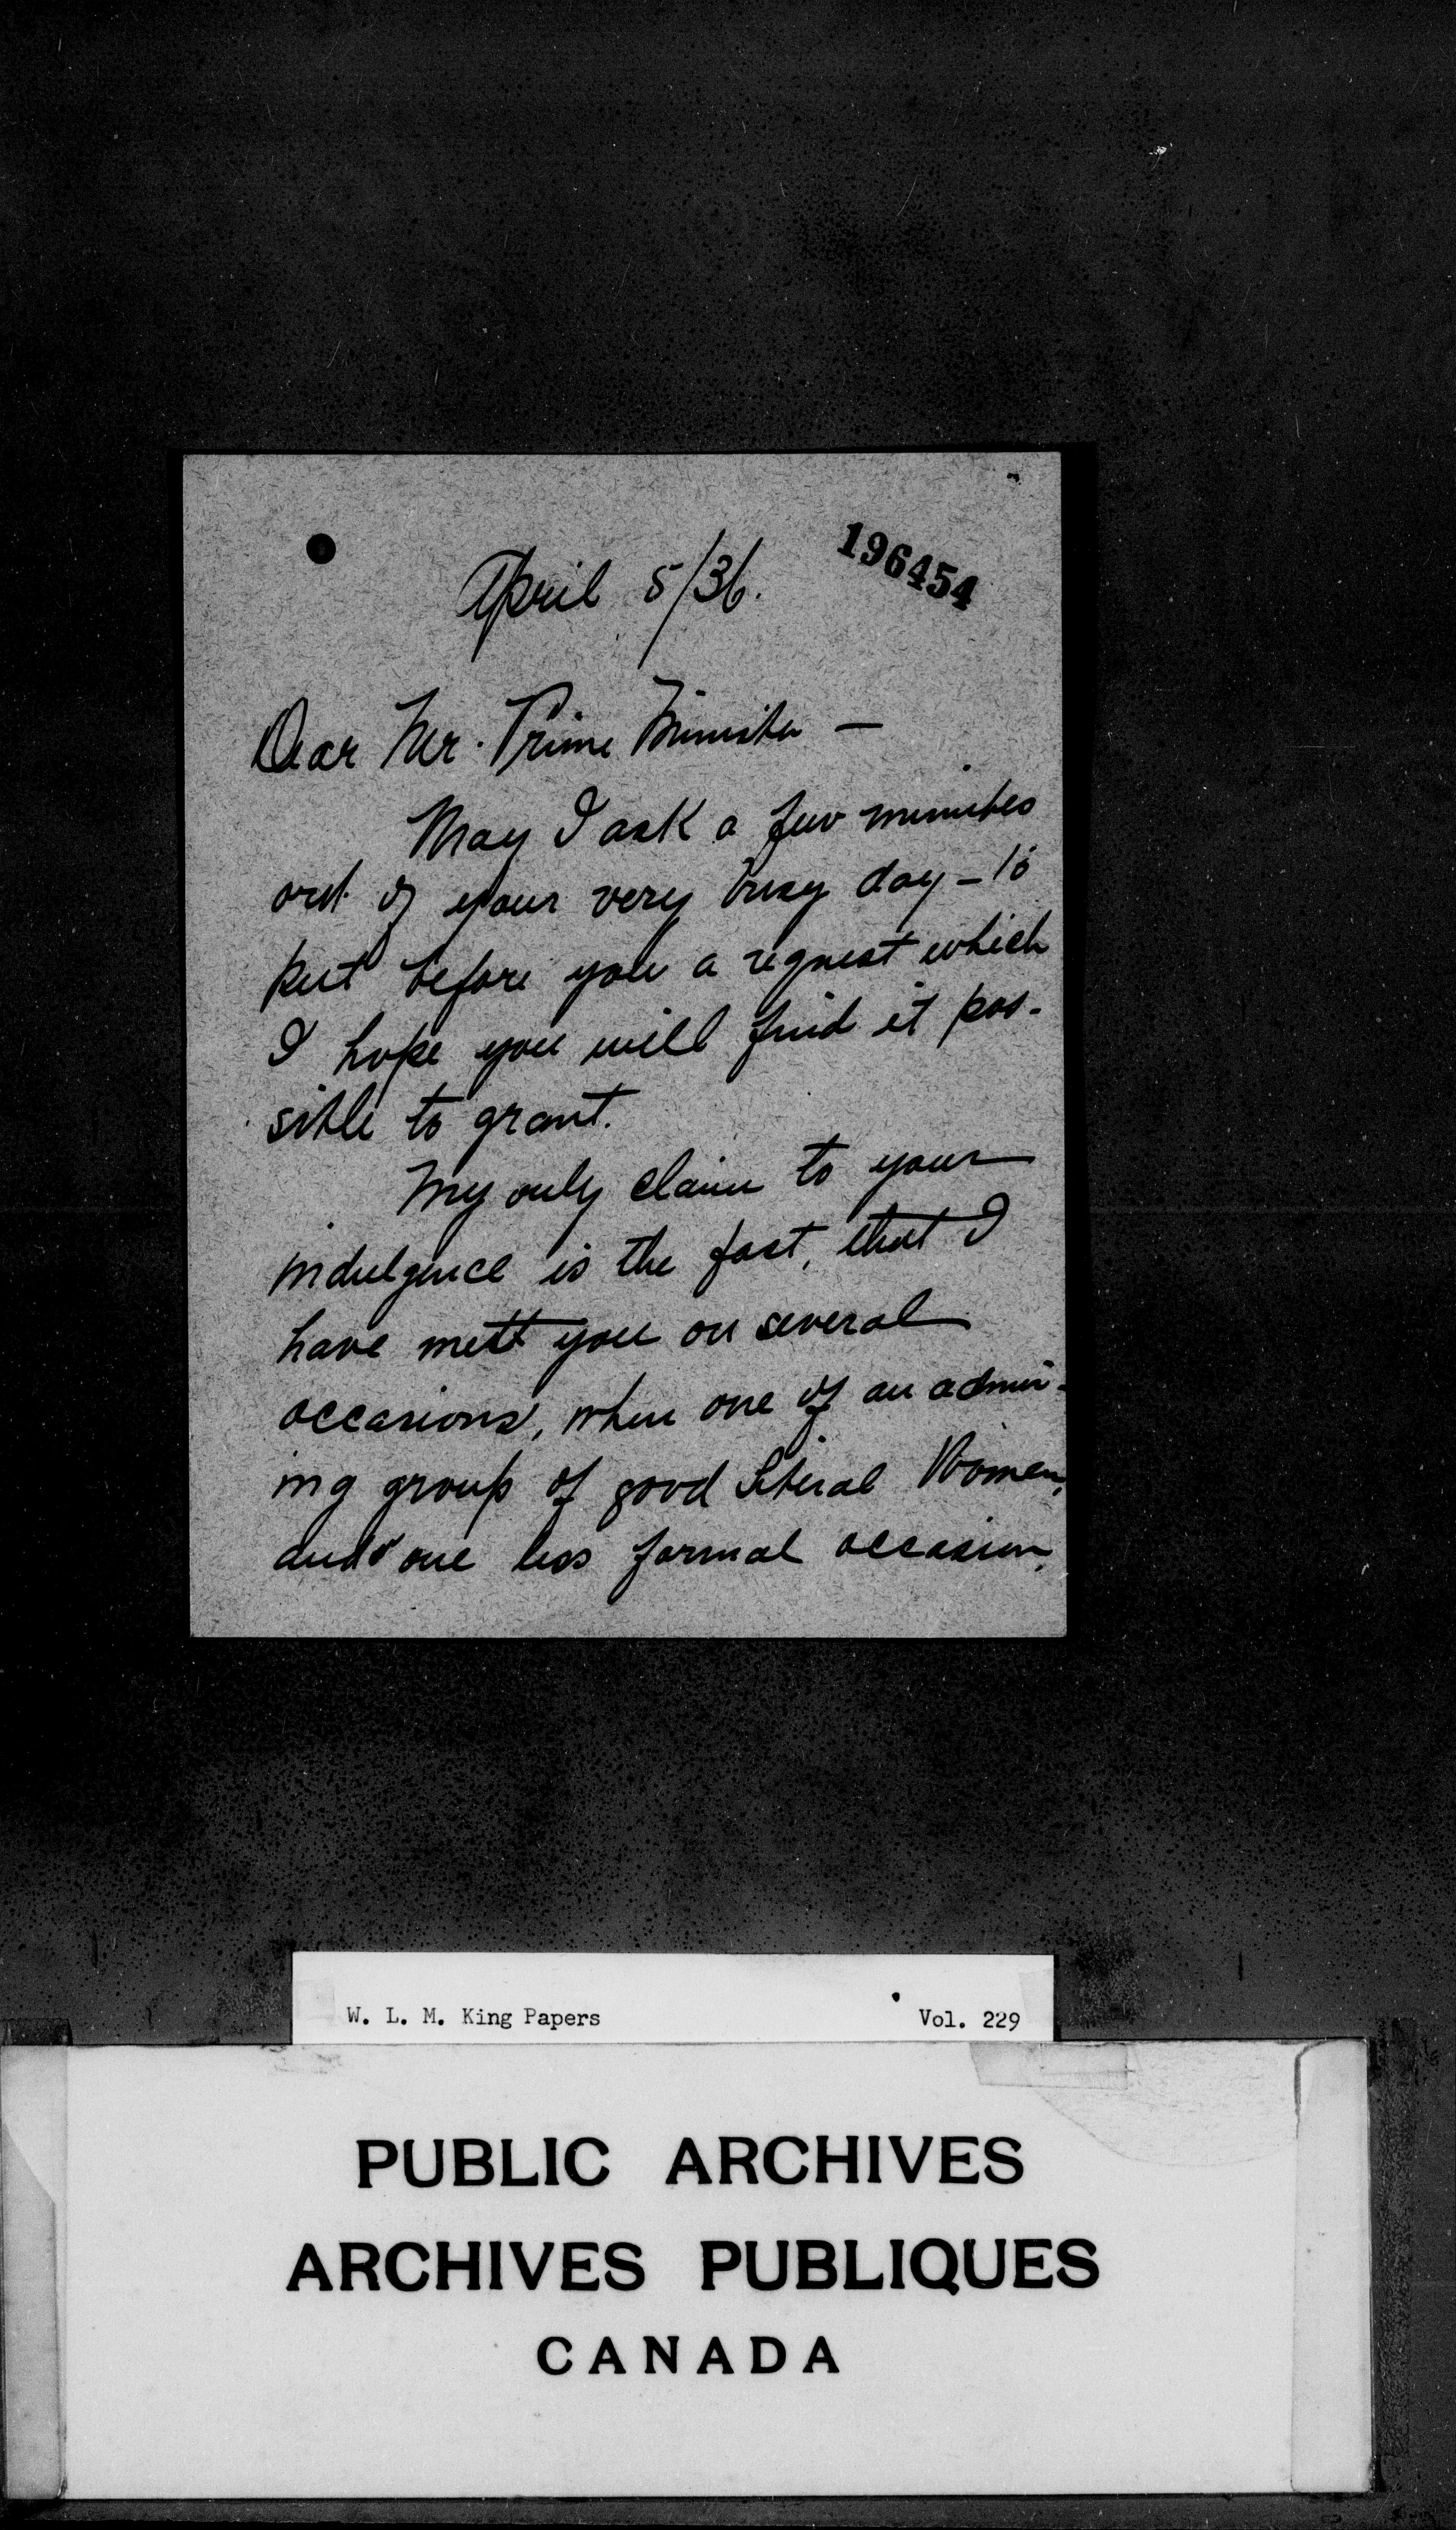 196454
April 5/36.
Dear Mr. Prime Minister —
May I ask a few minutes
out of your very busy day – to
put before you a request which
I hope you will find it pos-
sible to grant.
My only claim to your
indulgence is the fact, that I
have mett you on several
occasions, when one of an admir-
ing group of good Liberal Women,
and one less formal occasion.
W. L. M. King Papers Vol. 229
PUBLIC ARCHIVES
ARCHIVES PUBLIQUES
CANADA